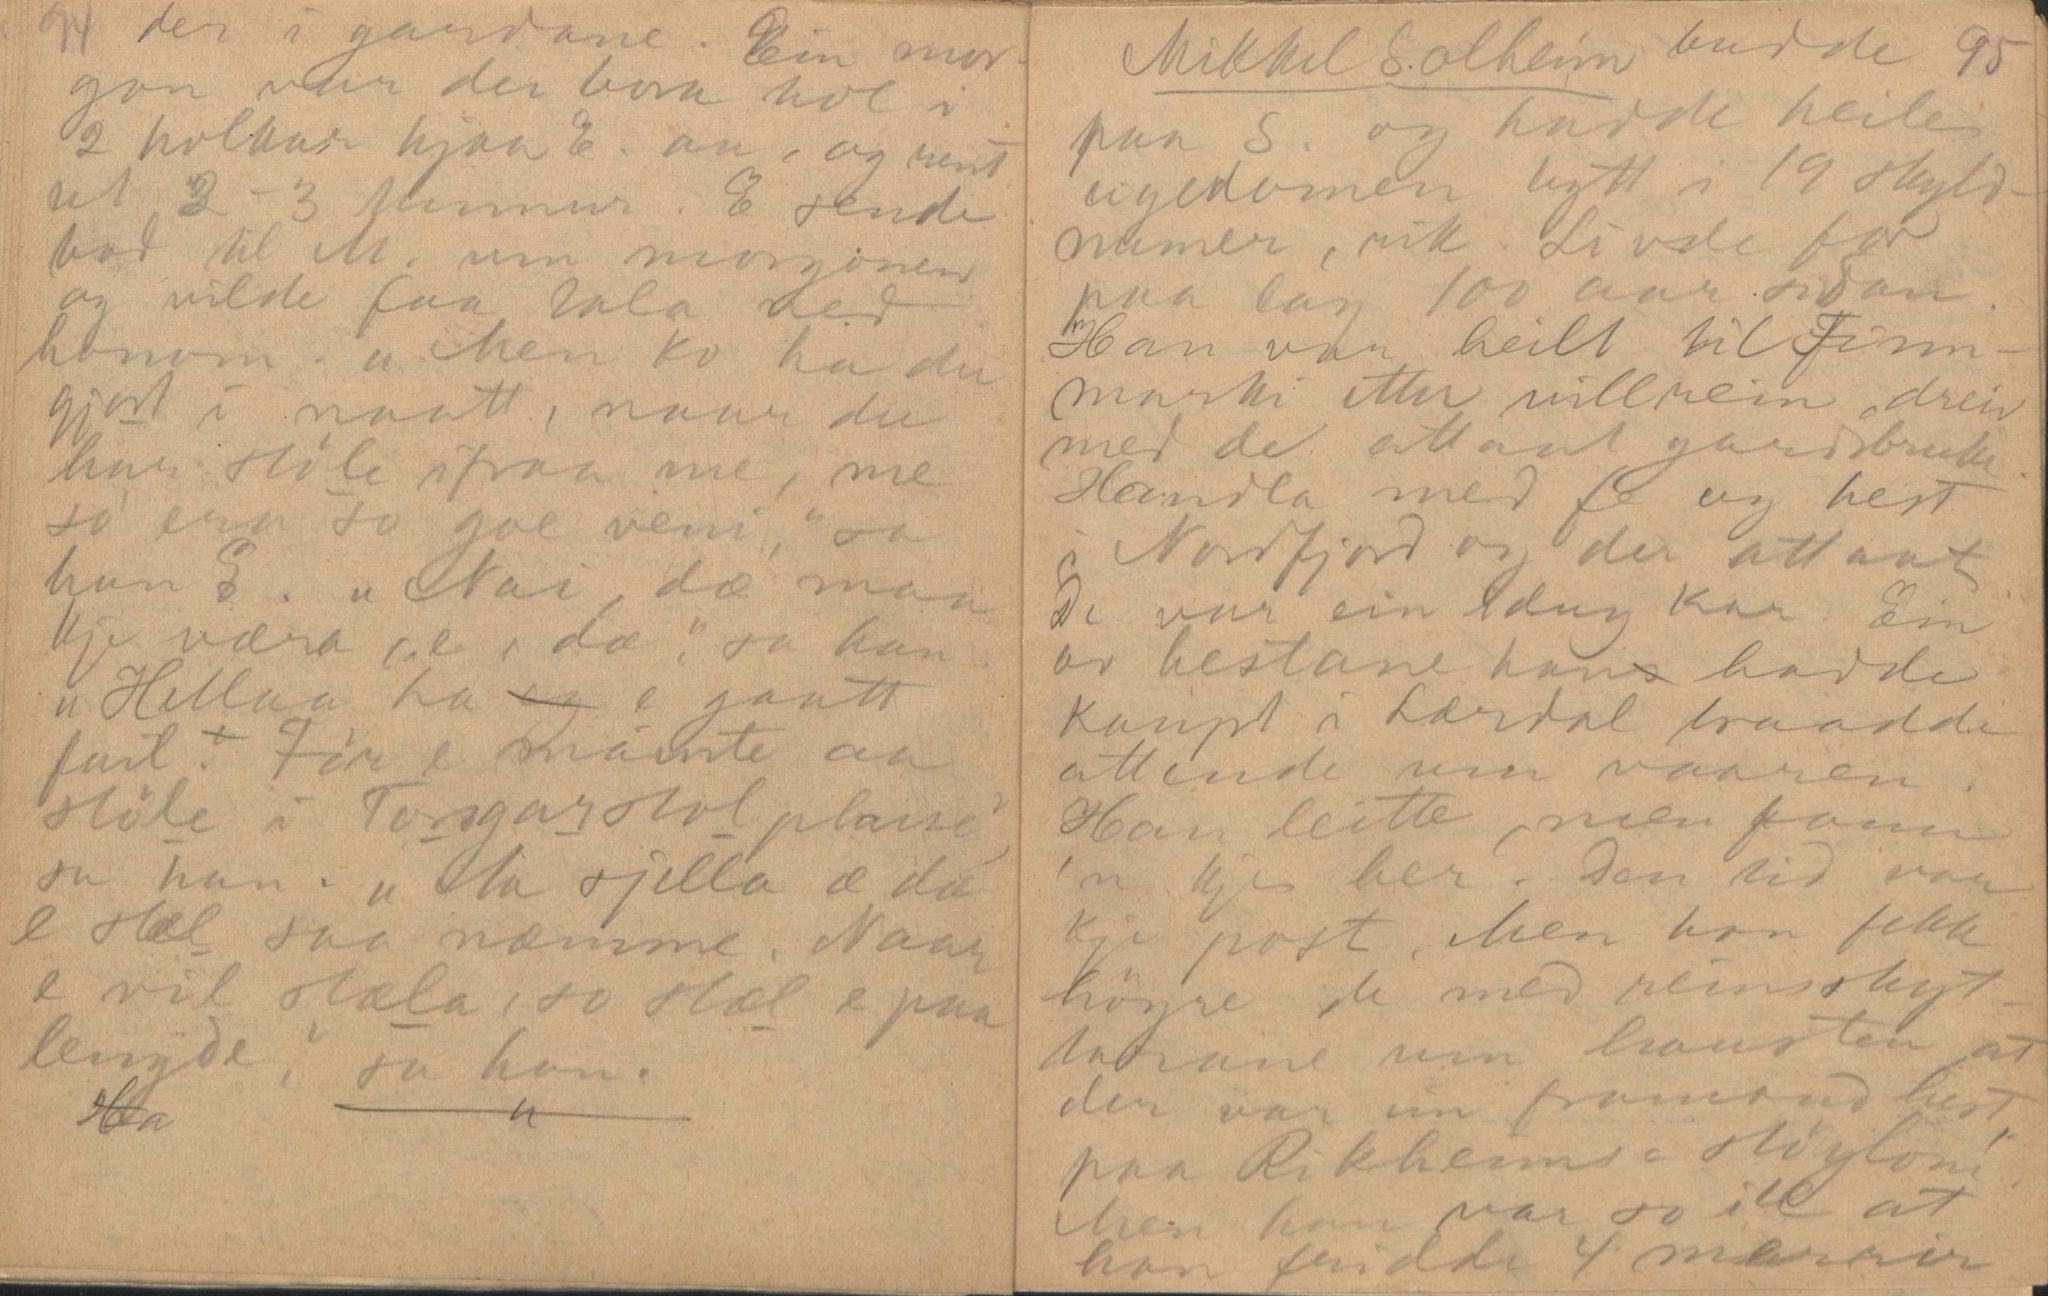 94 der i gardane. Ein mor-
gon var der bora hol i
2 holkar hjaa E. aa, og rent
ut 2 - 3 tunnur. E sende
bod til M. um morgonen
og vilde faa tala ved
honom. "Men ko ha du
gjort i naatt, naar du
har støle ifraa me, me
so era so goe veni," sa
han E. "Nai, dæ maa
kje væra, e, dæ," sa han.
"Hellaa ha e gaatt
feil. Før e mæinte aa
støle i Torsgarstol plasse"
sa han. "Ja sjella æ dæ
e stæl saa næmme. Naar
e vil stæla, so stæl e paa
lengde," sa han.
Ha
Mikkel Solheim budde 95
paa S. og hadde heile
eigedomen bytt i 19 skyld-
numer, rik. Livde for
paa lag 100 aar sidan.
Han var heilt til Finn-
marki etter villrein, dreiv
med de attaat gardsbruke.
Handla med fe og hest
i Nordfjord og der attaat
De var ein dug kar. Ein
av hestane hans hadde
kaupt i Lærdal traadde
attende um vaaren.
Han leitte, men fann
'n kje her. Den tid var
kje post. Men han fekk
høyre de med reinsskyt-
tarane um hausten at
der var ein framand hest
paa Rikheims-støylom.
Men han var so ill at
han fridde 4 merrair